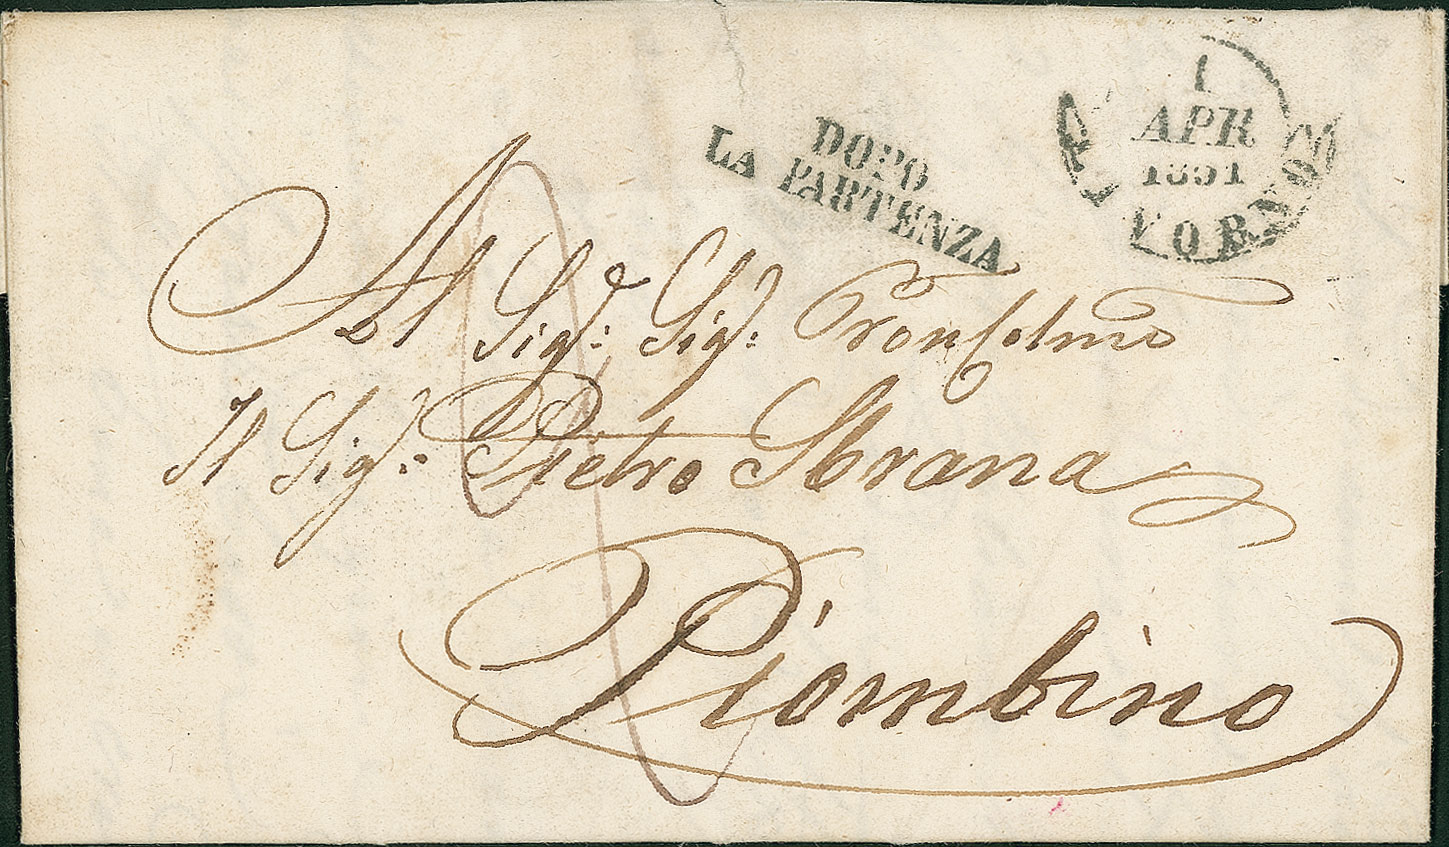 DOPO
LA PARTENZA
1
APR
1851
LIVORNO
Al Sig.: Sig.: Pron Colmo
Il Sig.: Pietro Strana
Piombino